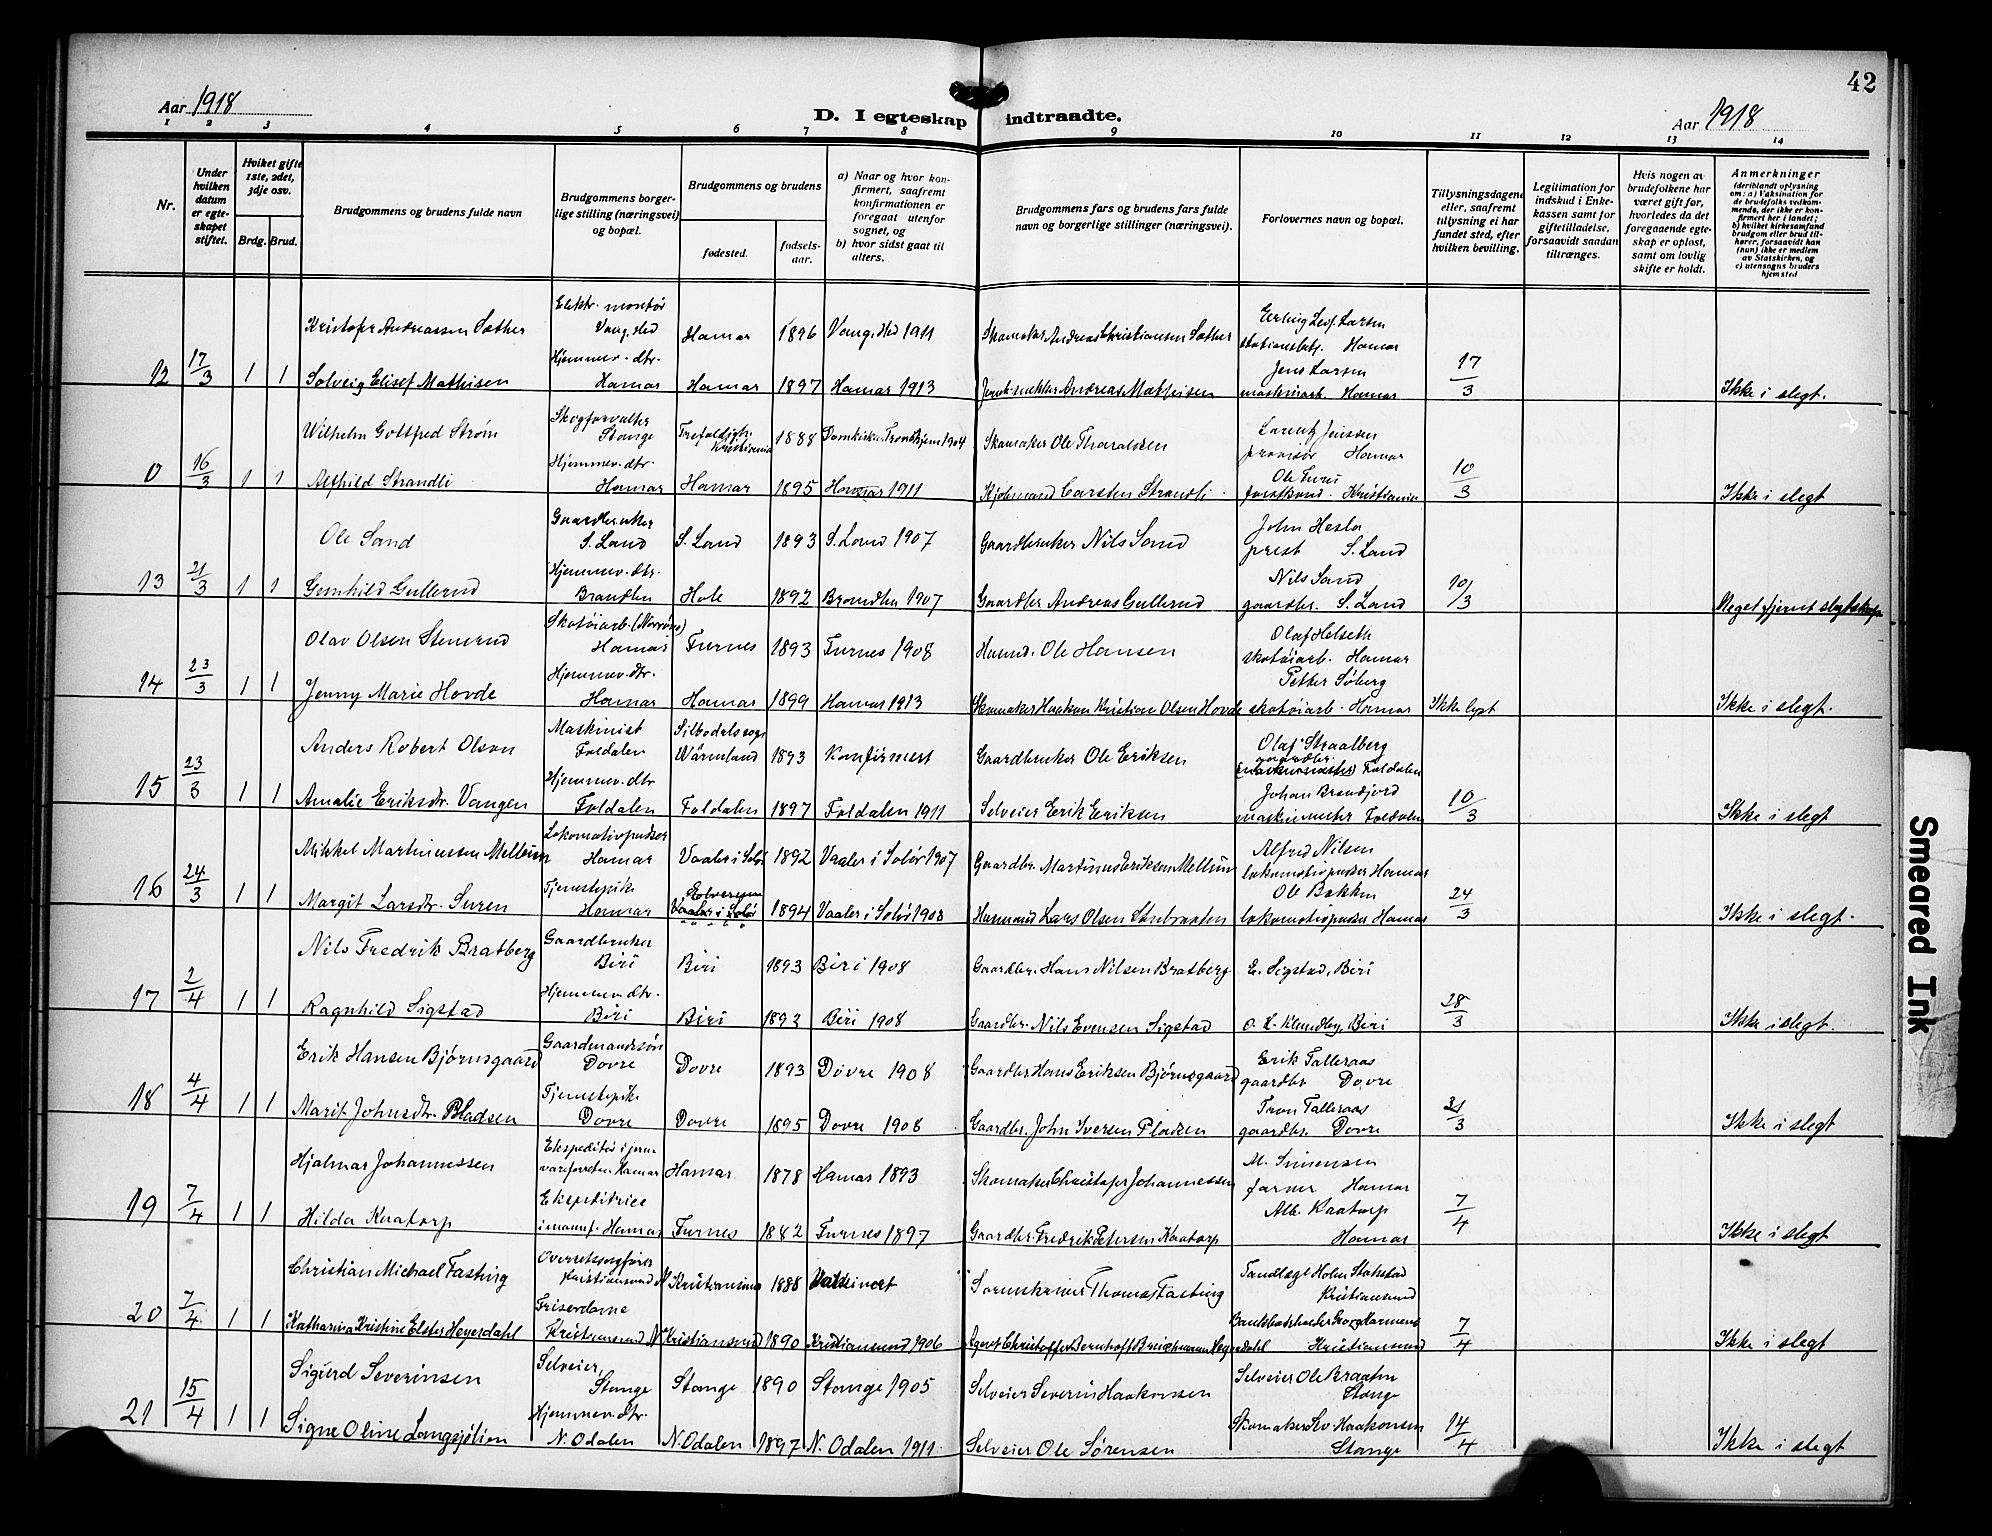 42
Aar 1918
D. I egteskap indtraadte.
Aar 1918
1 2 3 4 5 6 7 8 9 10 11 12 13 14
Nr.
Under hvilken datum er egteskapet stiftet.
Hvilket gifte 1ste, 2det, 3dje osv.
Brdg. Brud.
Brudgommens og brudens fulde navn
Brudgommens borgerlige stilling (næringsvei) og bopæl.
Brudgommens og brudens
fødested.
fødselsaar.
a) Naar og hvor konfirmert, saafremt konfirmationen er foregaat utenfor sognet, og
b) hvor sidst gaat til alters.
Brudgommens fars og brudens fars fulde navn og borgerlige stillinger (næringsvei).
Forlovernes navn og bopæl.
Tillysningsdagene eller, saafremt tillysning ei har fundet sted, efter hvilken bevilling.
Legitimation for indskud i Enkekassen samt for giftetilladelse, forsaavidt saadan tiltrænges.
Hvis nogen av brudefolkene har været gift før, hvorledes da det foregaaende egteskap er opløst, samt om lovlig skifte er holdt.
Anmerkninger
(deriblandt oplysning om: a) Vaksination for de brudefolks vedkommende, der ikke er konfirmert her i landet; b) hvilket kirkesamfund brudgom eller brud tilhører, forsaavidt han (hun) ikke er medlem av Statskirken, og c) utensogns bruders hjemsted
Kristofer Andreassen Sæther Elektr. montør Vang, Hed Hamar 1896 Vang, Hed 1911 Skomaker Andreas Christiansen Sæther Erling Leif Larsen stationsbetj. Hamar
12 17/3 1 1 Solveig Elisef Mathisen Hjemmev. dtr. Hamar Hamar 1897 Hamar 1913 Andreas Mathisen Jens Larsen maskinarb. Hamar 17/3 Ikke i slegt.
Wilhelm Gottfred Strøm Skogforvalter Stange Trefoldigh. Kristiania 1888 Domkirken Trondhjem 1904 Skomaker Ole Tharaldsen Lorentz Jenssen provisor Hamar
0 16/3 1 1 Alfhild Strandli Hjemmev. dtr. Hamar Hamar 1895 Hamar 1911 Kjøbmand Carsten Strandli Ole Furu forstkand. Kristiania 10/3 Ikke i slegt
Ole Sand Gaardbruker S. Land S. Land 1893 S. Land 1907 Gaardbruker Nils Sand John Hesla prest S. Land
13 21/3 1 1 Gunhild Gullerud Hjemmev. dtr. Brandbu Hole 1892 Brandbu 1907 Gaardbr. Andreas Gullerud Nils Sand gaardbr. S. Land 10/3 Meget fjernt slegtskap
Olav Olsen Stenerud Skotøiarb. Hamar Furnes 1893 Furnes 1908 Husmd. Ole Hansen Olaf Helseth skotøiarb. Hamar
14 23/3 1 1 Jenny Marie Hovde Hjemmev. dtr. Hamar Hamar 1899 Hamar 1913 Skomaker Haakon Kristian Olsen Hovde Petter Soberg skotøiarb. Hamar Ikke lyst Ikke i slegt.
Anders Robert Olson Maskinist Foldalen Silbodals sogn Wärmland 1893 Konfirmert Gaardbruker Ole Eriksen Olaf Straalberg gaardbr. Foldalen
15 23/3 1 1 Amalie Eriksdtr. Vangen Hjemmev. dtr Foldalen Foldalen 1897 Foldalen 1911 Selveier Erik Eriksen Johan Brendjord maskinmester Foldalen 10/3 Ikke i slegt
Mikkel Martinussen Mellum Lokomotivpudser Hamar Vaaler i Solør 1892 Vaaler i Solør 1907 Gaardbr. Martinus Eriksen Mellum Alfred Nilsen lokomotivpudser Hamar
16 24/3 1 1 Margit Larsdtr. Suren Tjenestepike Hamar Elverum Vaaler i Solør 1894 Vaaler i Solør 1908 Husmand Lars Olsen Stenbraaten Ole Bakken lokomotivpudser Hamar 24/3 Ikke i slegt.
Nils Fredrik Bratberg Gaardbruker Biri Biri 1893 Biri 1908 Gaardbr. Hans Nilsen Bratberg E. Sigstad, Biri
17 2/4 1 1 Ragnhild Sigstad Hjemmev. dtr. Biri Biri 1892 Biri 1908 Gaardbr. Nils Evensen Sigstad O. H. Klundby, Biri 28/3 Ikke i slegt.
Erik Hansen Bjørnsgaard Gaardmandssøn Dovre Dovre 1893 Dovre 1908 Gaardbr Hans Eriksen Bjørnsgaard Erik Talleraas gaardbr Dovre
18 4/4 1 1 Marit Johnsdtr. Pladsen Tjenestepike Dovre Dovre 1895 Dovre 1908 Gaardbr. John Iversen Pladsen Tron Talleraas gaardbr. Dovre 31/3 Ikke i slegt
Hjalmar Johannessen Ekspeditør i jernvareforretn Hamar Hamar 1878 Hamar 1893 Skomaker Christofer Johannessen M. Simensen farver Hamar
19 7/4 1 1 Hilda Kaatorp Ekspeditrice i manuf. Hamar Furnes 1882 Furnes 1897 Gaardbr. Fredrik Petersen Kaatorp Alb. Kaatorp Hamar 7/4 Ikke i slegt
Christian Michael Fasting Overretssagfører Kristiansund N Kristiansund 1888 Vaksinert Sorenskriver Thomas Fasting Tandlæge Holm Stokstad Kristiansund
20 7/4 1 1 Katharina Kristine Elster Heyerdahl Friserdame Kristiansund N Kristiansund 1890 Kristiansund 1906 Agent Christoffer Bernhoft Heyerdahl Georg Harmens Kristiansund 7/4 Ikke i slegt
Sigurd Severinsen Selveier, Stange Stange 1890 Stange 1905 Selveier Severin Haakonsen Selveier Ole Braaten Stange
21 15/4 1 1 Signe Oline Langsjølien Hjemmev. dtr. N. Odalen N. Odalen 1897 N. Odalen 1911 Selveier Ole Sørensen Skomaker Sev. Haakonsen Stange 14/4 Ikke i slegt
Smeared Ink